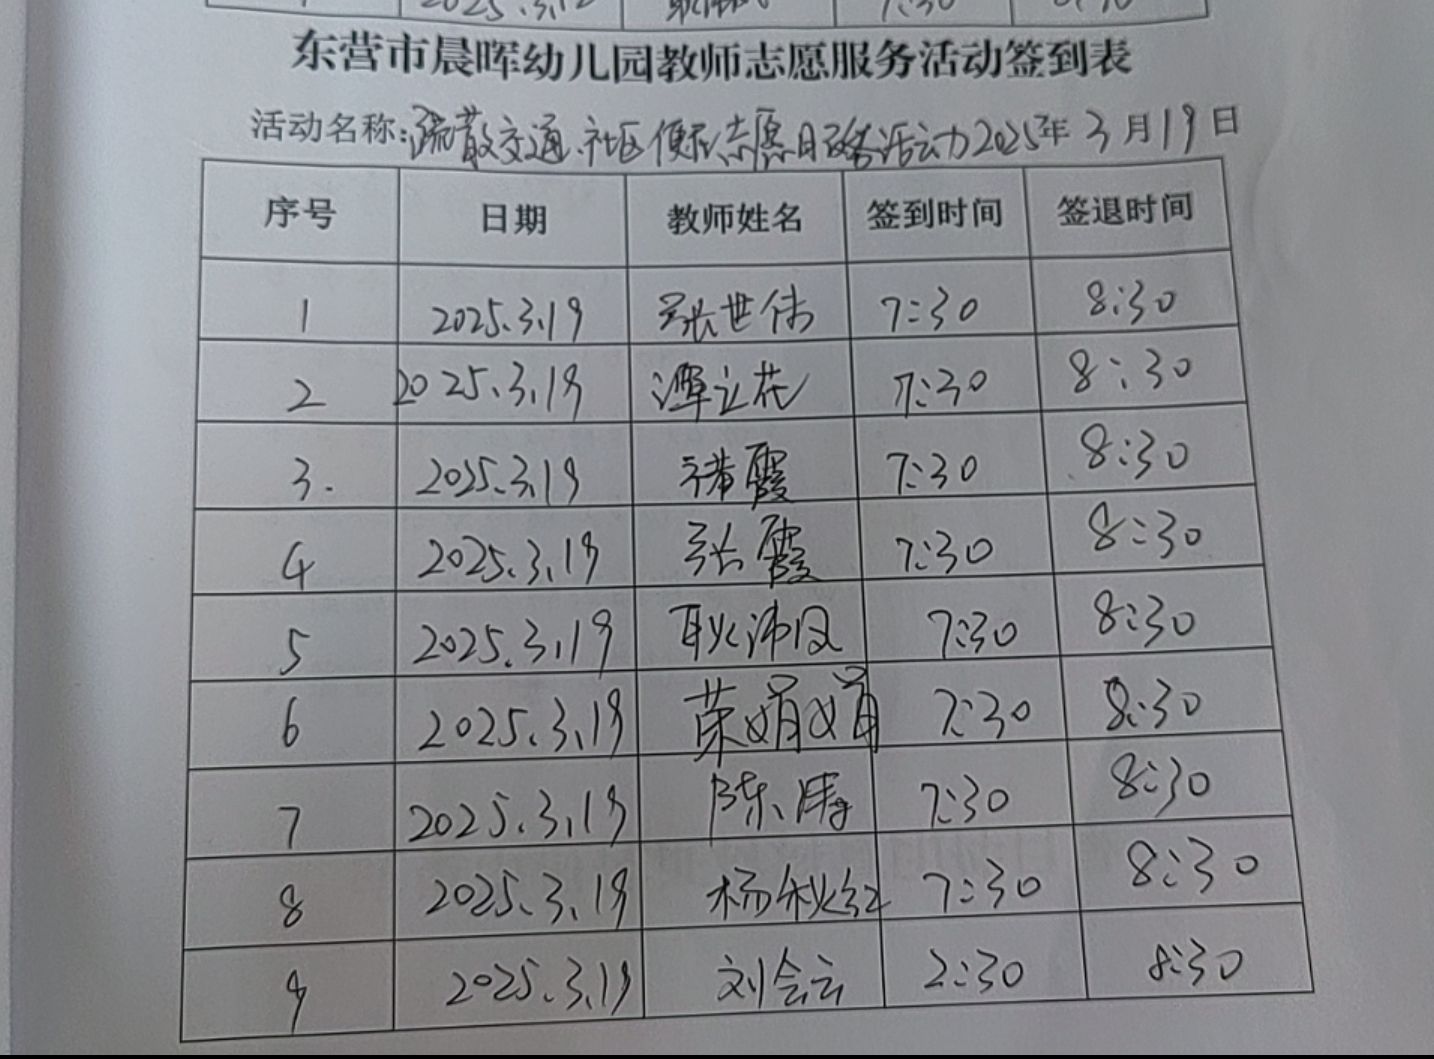 2025.3.12 7:30
东营市晨晖幼儿园教师志愿服务活动签到表
活动名称:疏散交通.社区便民志愿服务活动2025年3月19日
序号 日期 教师姓名 签到时间 签退时间
1 2025.3.19 张世伟 7:30 8:30
2 2025.3.19 覃立花 7:30 8:30
3. 2025.3.19 霞 7:30 8:30
4 2025.3.19 张霞 7:30 8:30
5 2025.3.19 耿沛 7:30 8:30
6 2025.3.19 荣娟娟 7:30 8:30
7 2025.3.19 陈涛 7:30 8:30
8 2025.3.19 杨秋红 7:30 8:30
9 2025.3.19 刘会云 2:30 8:30